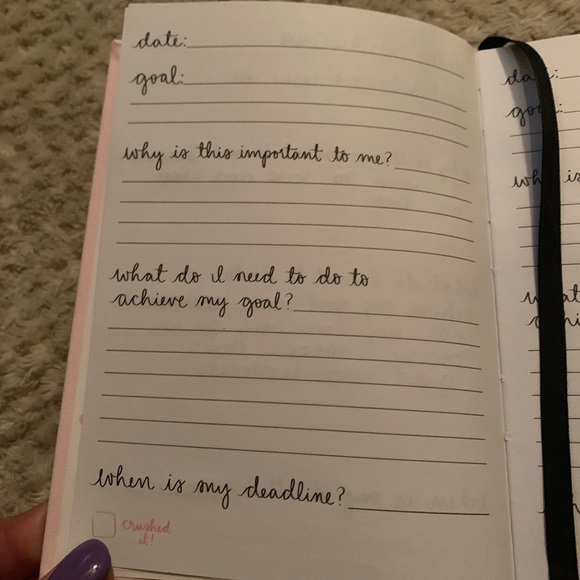 date:
goal:
why is this important to me?
what do I need to do to
achieve my goal?
when is my deadline?
crushed
it!